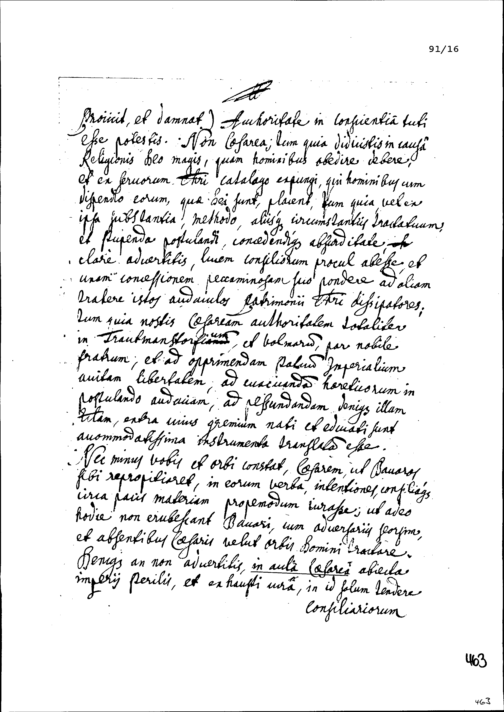 91/16
Proiicit, et damnat) Authoritate in conscientiâ tuti
esse potestis. Non Cæsarea, tum quia didicistis in causâ
Religionis Deo magis, quam hominibus obedire debere,
et ex servorum Chri catalago expungi, qui hominibus cum
dispendio eorum, quæ Dei sunt, placent, tum quia vel ex
ipsa substantia, methodo, aliisq circumstantiis tractatuum,
et stupenda postulandi, concedendiq absurditate,
clare advertitis, lucem consiliorum procul abesse, et
unam concessionem peccaminosam suo pondere ad aliam
trahere istos Patrimonii Chri dissipatores,
tum quia nostis Cæsaream authoritatem totaliter
in et Volmarū, par nobile
fratrum, et ad opprimendam Statuū Imperialium
avitam libertatem, ad hæreticorum in
postulando audaciam, ad deniq illam
extra unius gremium nati et educati sunt
accommodatissima instrumenta translatā esse.
Nec minus vobis et orbi constat, Cæsarem, ut Bavaros
sibi repropitiaret, in eorum verba, intentiones, consiliaq
circa pacis materiam propemodum iurasse, ut adeo
hodie non erubescant Bavari, cum adversariis seorsim,
et absentibus Cæsaris velut orbis Domini tractare.
Deniq an non advertitis, in aulâ Cæsareâ abiecta
imperii sterilis, et exhausti curâ, in id solum tendere
Consiliariorum
463
463